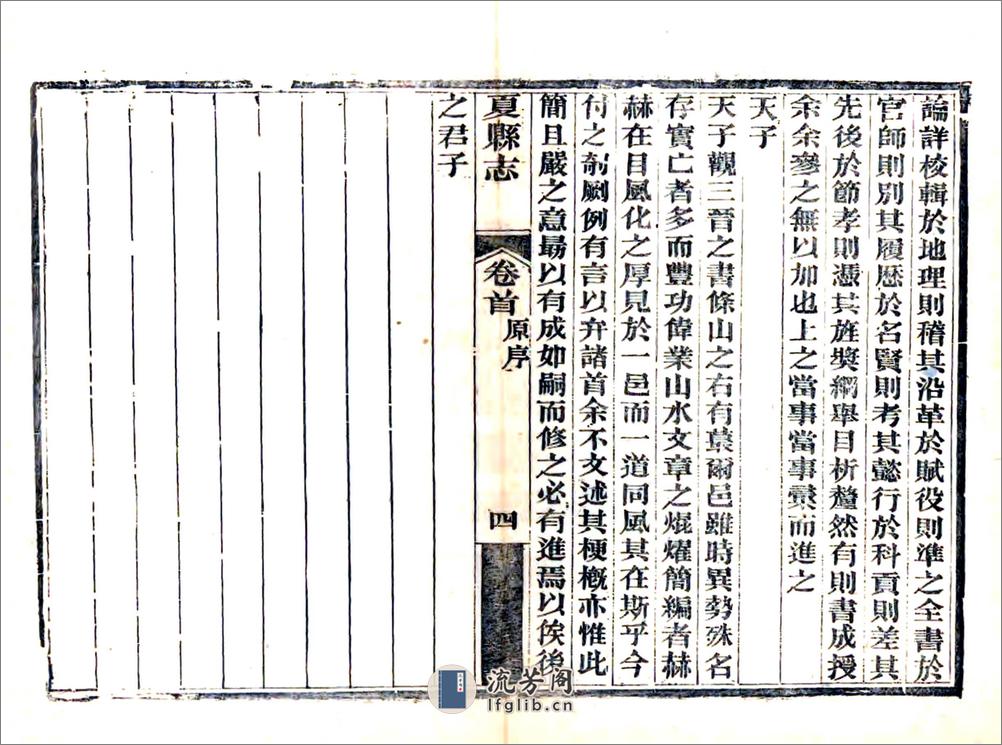 論詳校輯於地理則稽其沿革於賦役則準之全書於
官師則別其履歷於名賢則考其懿行於科貢則差其
先後於節孝則憑其旌獎綱舉目析釐然有則書成授
余余參之無以加也上之當事當事彙而進之
天子
天子觀三晉之書條山之右有蕞爾邑雖時異勢殊名
存實亡者多而豐功偉業山水文章之焜燿簡編者赫
赫在目風化之厚見於一邑而一道同風其在斯乎今
付之剞劂例有言以弁諸首余不文述其梗概亦惟此
簡且嚴之意最以有成如嗣而修之必有進焉以俟後
之君子
夏縣志
卷首
原序
四
流芳阁
lfglib.cn